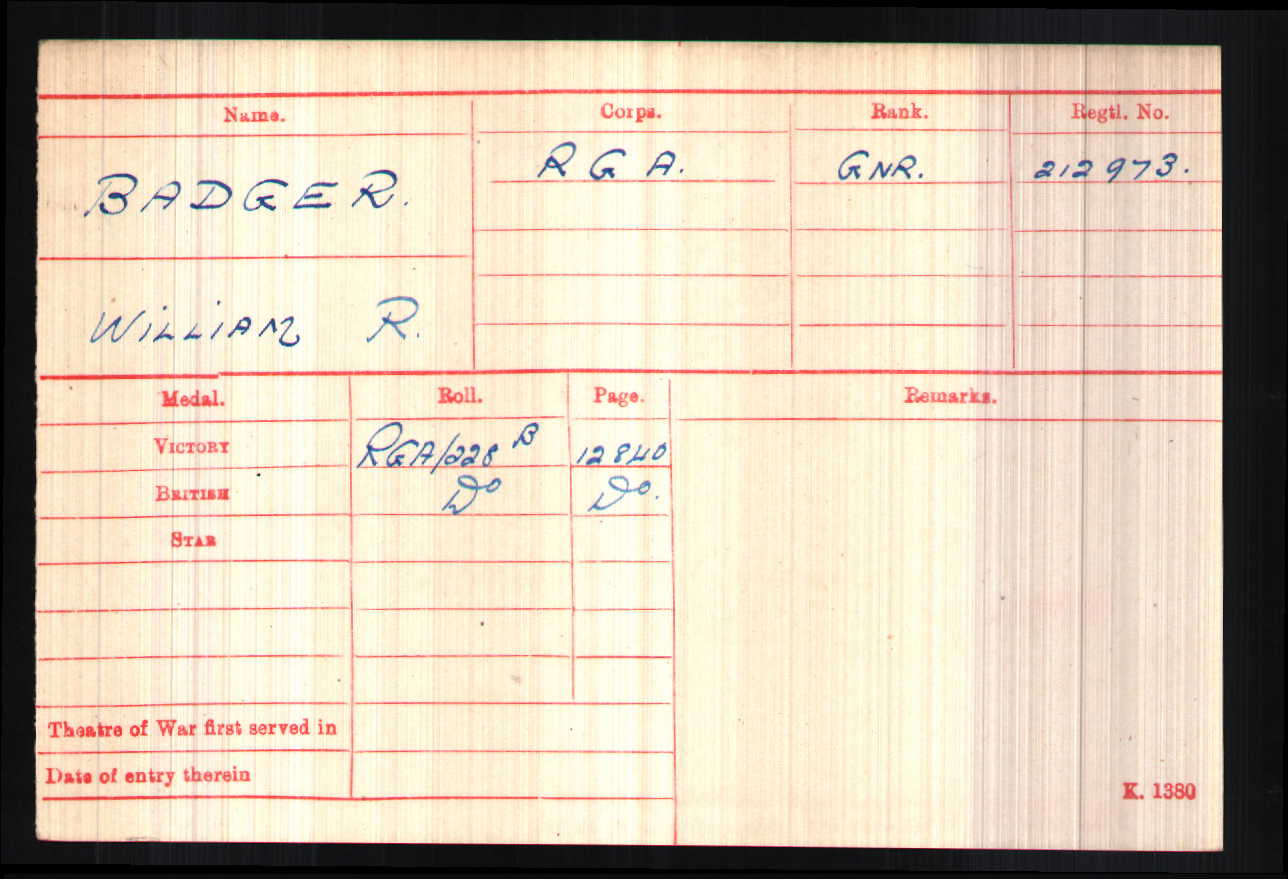 Name. Corps. Rank. Regtl. No.
BADGER. R G A. GNR. 212973.
WILLIAM R.
Medal. Roll. Page. Remarks.
VICTORY RGA/228 B 12840
BRITISH Do Do.
STAR
Theatre of War first served in
Date of entry therein
K. 1380